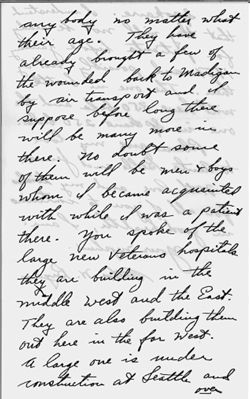 any body no matter what
their age. They have
already brought a few of
the wounded back to Madigan
by air transport and I
suppose before long there
will be many more in
there. No doubt some
of them will be men & boys
whom I became acquainted
with while I was a patient
there. You spoke of the
large new Veterans hospitals
they are building in the
middle West and the East.
They are also building them
out here in the far West.
A large one is under
construction at Seattle and
over